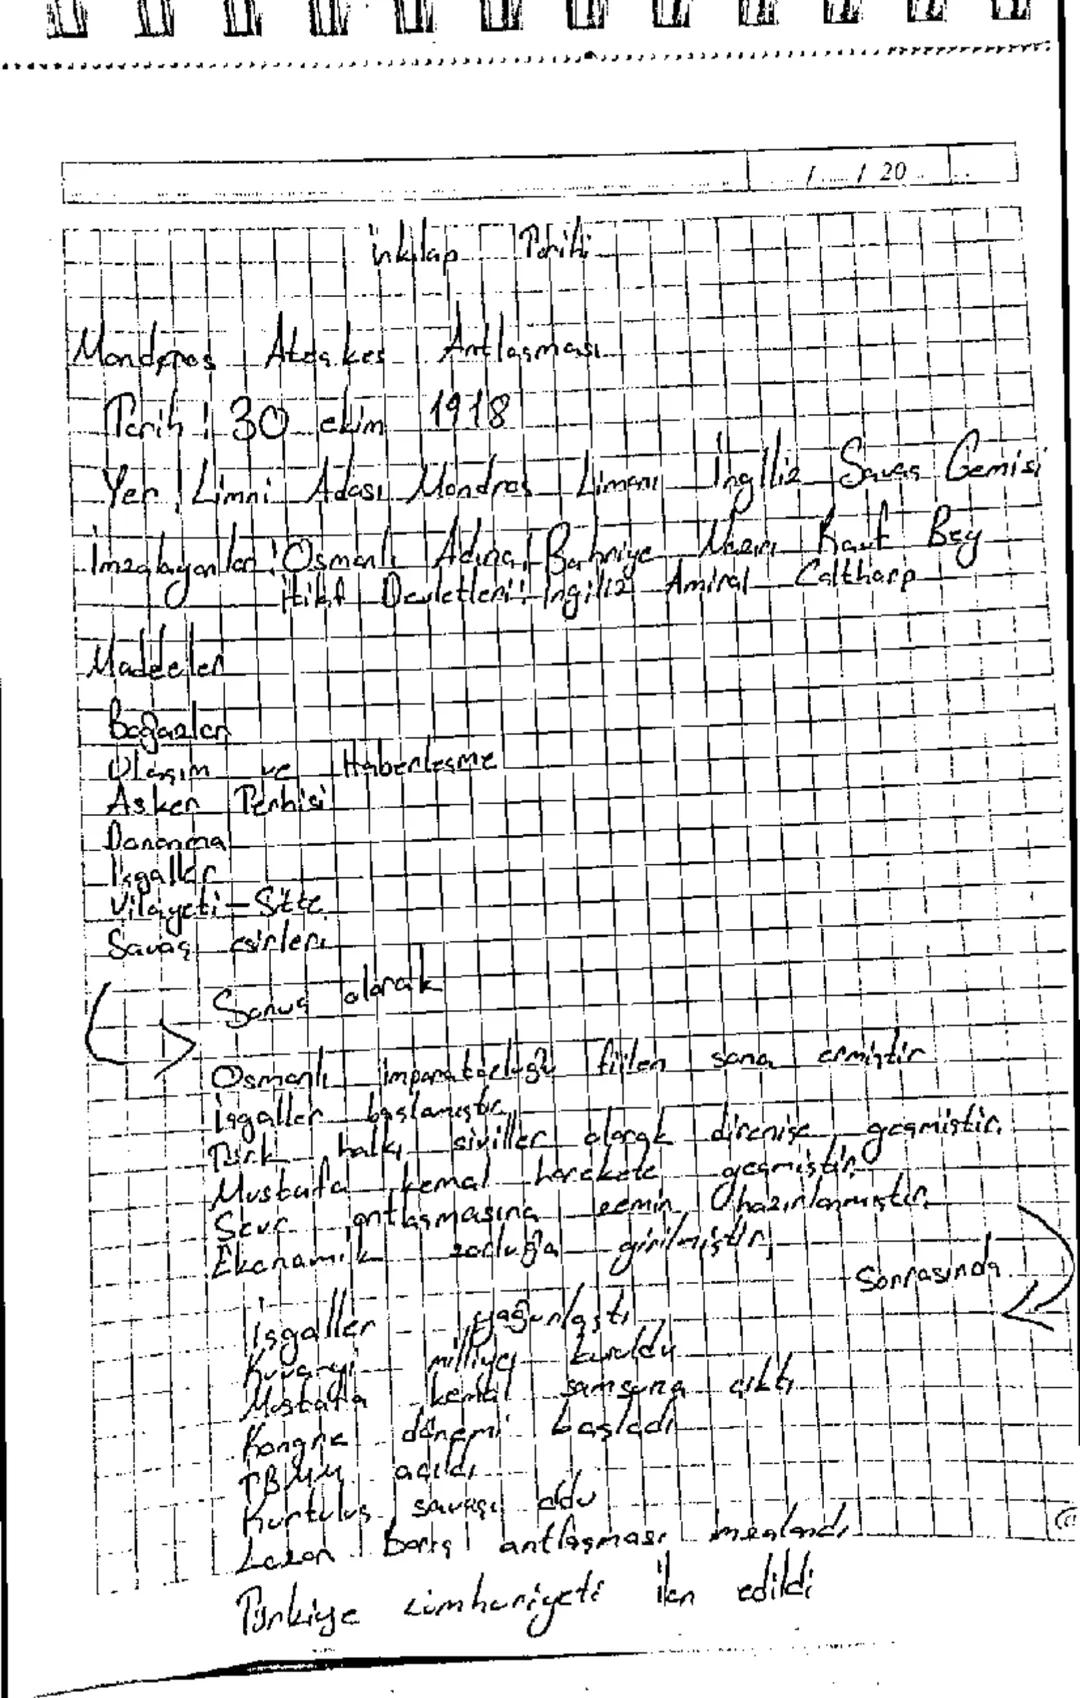 / / 20
inkılap Tarihi
Mondros Ateşkes Antlaşması
Tarih : 30 ekim 1918
Yer : Limni Adası Mondros Limanı İngiliz Savaş Gemisi
İmzalayanlar : Osmanlı Adına : Bahriye Nazırı Rauf Bey
İtilaf Devletleri : İngiliz Amiral Calthorp
Maddeler
Boğazlar
Ulaşım ve Haberleşme
Asker Terhisi
Donanma
İşgaller
Vilayeti - Sitte
Savaş esirleri
Sonuç olarak
Osmanlı imparatorluğu fiilen sona ermiştir
işgaller başlamıştır
Türk halkı siviller olarak direnişe geçmiştir.
Mustafa kemal harekete geçmiştir.
Sevr antlaşmasına zemin hazırlanmıştır.
Ekonomik zorluğa girilmiştir.
Sonrasında
İşgaller yağunlaştı
Kuvayi milliye kuruldu
Mustafa kemal samsuna çıktı
Kongre dönemi başladı
TBMM açıldı
Kurtuluş savaşı oldu
Lozan Barış antlaşması imzalandı
Türkiye cumhuriyeti ilan edildi